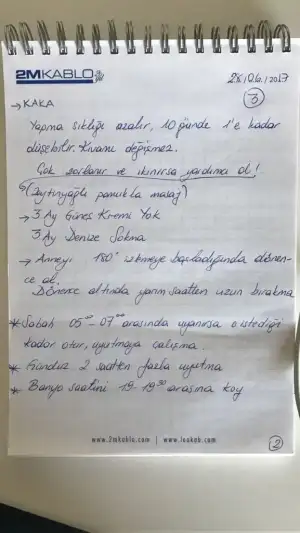 2MKABLO
28/06/2017
3
→ KAKA
Yapma sıklığı azalır, 10 günde 1'e kadar
düşebilir. Kıvamı değişmez.
Çok zorlanır ve ıkınırsa yardımcı ol!
(Zeytinyağlı pamukla masaj)
→ 3 Ay Güneş Kremi Yok
3 Ay Denize Sokma
→ Anneyi 180° izlemeye başladığında dönen-
ce al.
Dönence altında yarım saatten uzun bırakma
* Sabah 05⁰⁰ - 07⁰⁰ arasında uyanırsa o istediği
kadar otur, uyutmaya çalışma.
* Gündüz 2 saatten fazla uyutma
* Banyo saatini 19-19³⁰ arasına koy
www.2mkablo.com | www.leakeb.com
2